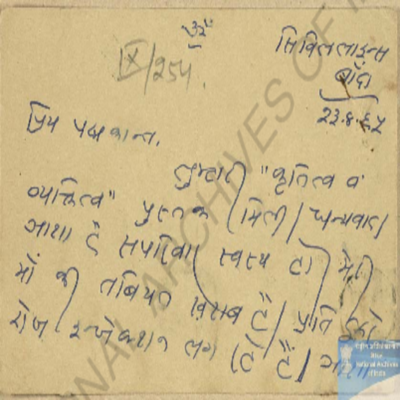 ॐ
IX/254
सिविल लाइन्स
बाँदा
23.4.65
प्रिय पद्मकान्त,
तुम्हारी "कृतित्व व
व्यक्तित्व" पुस्तक मिली। धन्यवाद।
आशा है सपरिवार स्वस्थ हो। मेरी
माँ की तबियत खराब है। प्रति
रोज इन्जेक्शन लग रहे हैं।
NATIONAL ARCHIVES OF